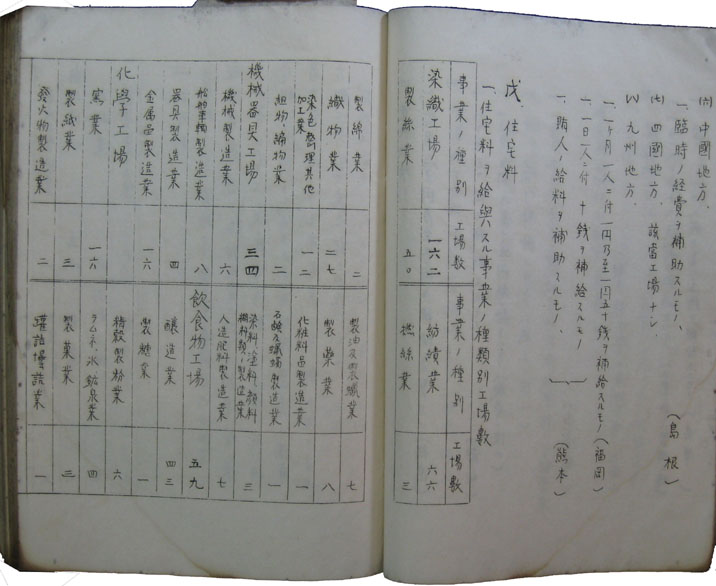 (六) 中國地方、
一、臨時ノ經費ヲ補助スルモノ、 (島根)
(七) 四國地方、該當工場ナシ
(八) 九州地方、
一、一ヶ月一人ニ付一円乃至一円五十錢ヲ補給スルモノ (福岡)
一、一日一人ニ付 十錢ヲ補給スルモノ
一、賄人ノ給料ヲ補助スルモノ、 (熊本)
戊、住宅料
一、住宅料ヲ給與スル事業ノ種類別工場數
事業ノ種別 工場數 事業ノ種別 工場數
染織工場 一六二 紡績業 六六
製絲業 五〇 撚絲業 三
製綿業 二 製油及製蠟業 七
織物業 二七 製藥業 八
染色整理其他加工業 一二 化粧料品製造業 一
組物編物業 二 石鹼及蠟燭製造業 一
機械器具工場 三四 染料塗料顔料糊料類ノ製造業 三
機械製造業 六 人造肥料製造業 七
船舶車輌製造業 八 飲食物工場 五九
器具製造業 四 釀造業 四三
金属品製造業 一六 製糖業 一
化學工場 精穀製粉業 六
窯業 一六 ラムネ氷鑛泉業 四
製紙業 三 製菓業 三
發火物製造業 二 罐詰壜詰業 一